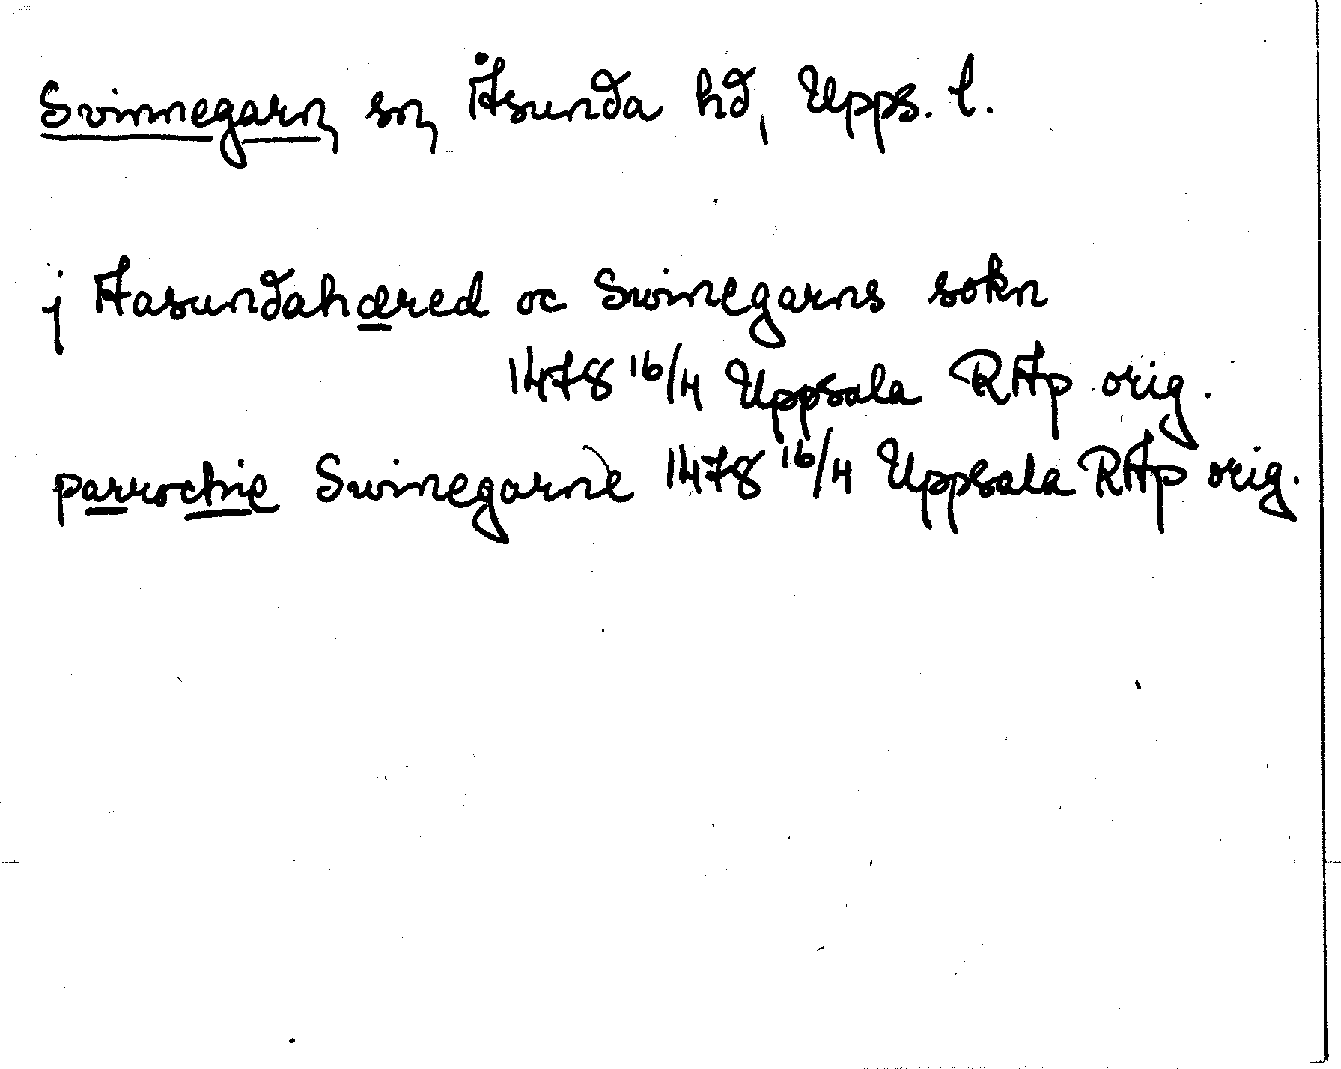 Svinnegarn, sn, Åsunda hd, Upps. l.
j Aasundahæred oc Swinegarns sokn
1478 16/4 Uppsala RAp orig.
parrochie Swinegarne 1478 16/4 Uppsala RAp orig.